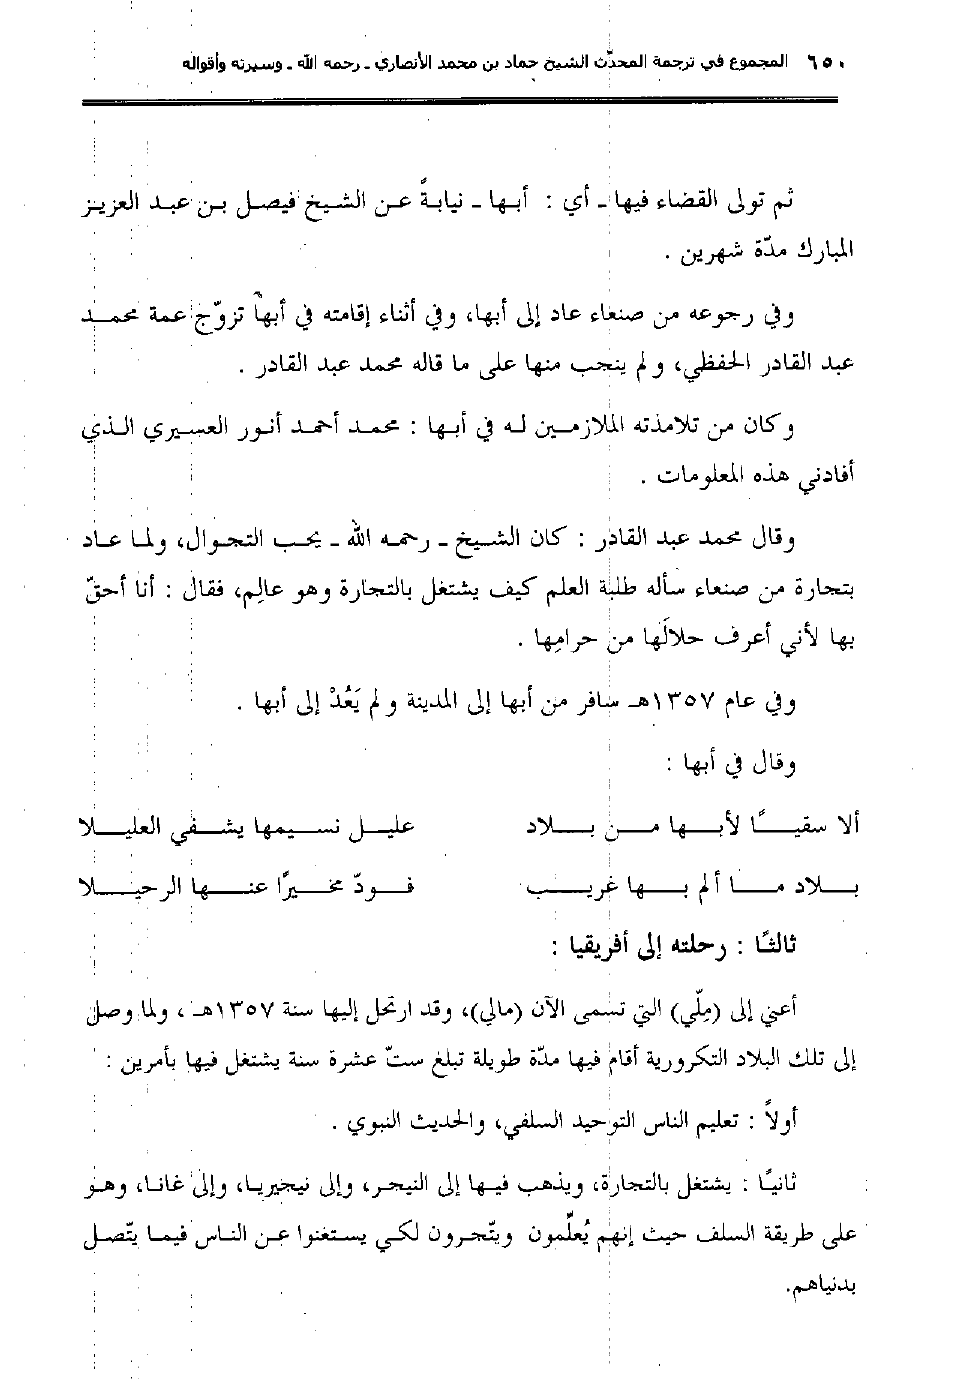 ٦٥٠ المجموع في ترجمة المحدّث الشيخ حماد بن محمد الأنصاري ـ رحمه الله ـ وسيرته وأقواله
ثم تولى القضاء فيها ـ أي : أبها ـ نيابةً عن الشيخ فيصل بن عبد العزيز
المبارك مدّة شهرين .
وفي رجوعه من صنعاء عاد إلى أبها، وفي أثناء إقامته في أبها تزوّج عمة محمد
عبد القادر الحفظي، ولم ينجب منها على ما قاله محمد عبد القادر .
وكان من تلامذته الملازمين له في أبها : محمد أحمد أنور العسيري الذي
أفادني هذه المعلومات .
وقال محمد عبد القادر : كان الشيخ ـ رحمه الله ـ يحب التجوال، ولما عاد
بتجارة من صنعاء سأله طلبة العلم كيف يشتغل بالتجارة وهو عالِم، فقال : أنا أحقّ
بها لأني أعرف حلالَها من حرامِها .
وفي عام ١٣٥٧هـ سافر من أبها إلى المدينة ولم يَعُدْ إلى أبها .
وقال في أبها :
ألا سقيًا لأبها من بلاد عليل نسيمها يشفي العليلا
بلاد ما ألم بها غريب فودّ مخيرًا عنها الرحيلا
ثالثًا : رحلته إلى أفريقيا :
أعني إلى (مِلّي) التي تسمى الآن (مالي)، وقد ارتحل إليها سنة ١٣٥٧هـ ، ولما وصل
إلى تلك البلاد التكرورية أقام فيها مدّة طويلة تبلغ ستّ عشرة سنة يشتغل فيها بأمرين :
أولاً : تعليم الناس التوحيد السلفي، والحديث النبوي .
ثانيًا : يشتغل بالتجارة، ويذهب فيها إلى النيجر، وإلى نيجيريا، وإلى غانا، وهو
على طريقة السلف حيث إنهم يُعلّمون ويتّجرون لكي يستغنوا عن الناس فيما يتّصل
بدنياهم.